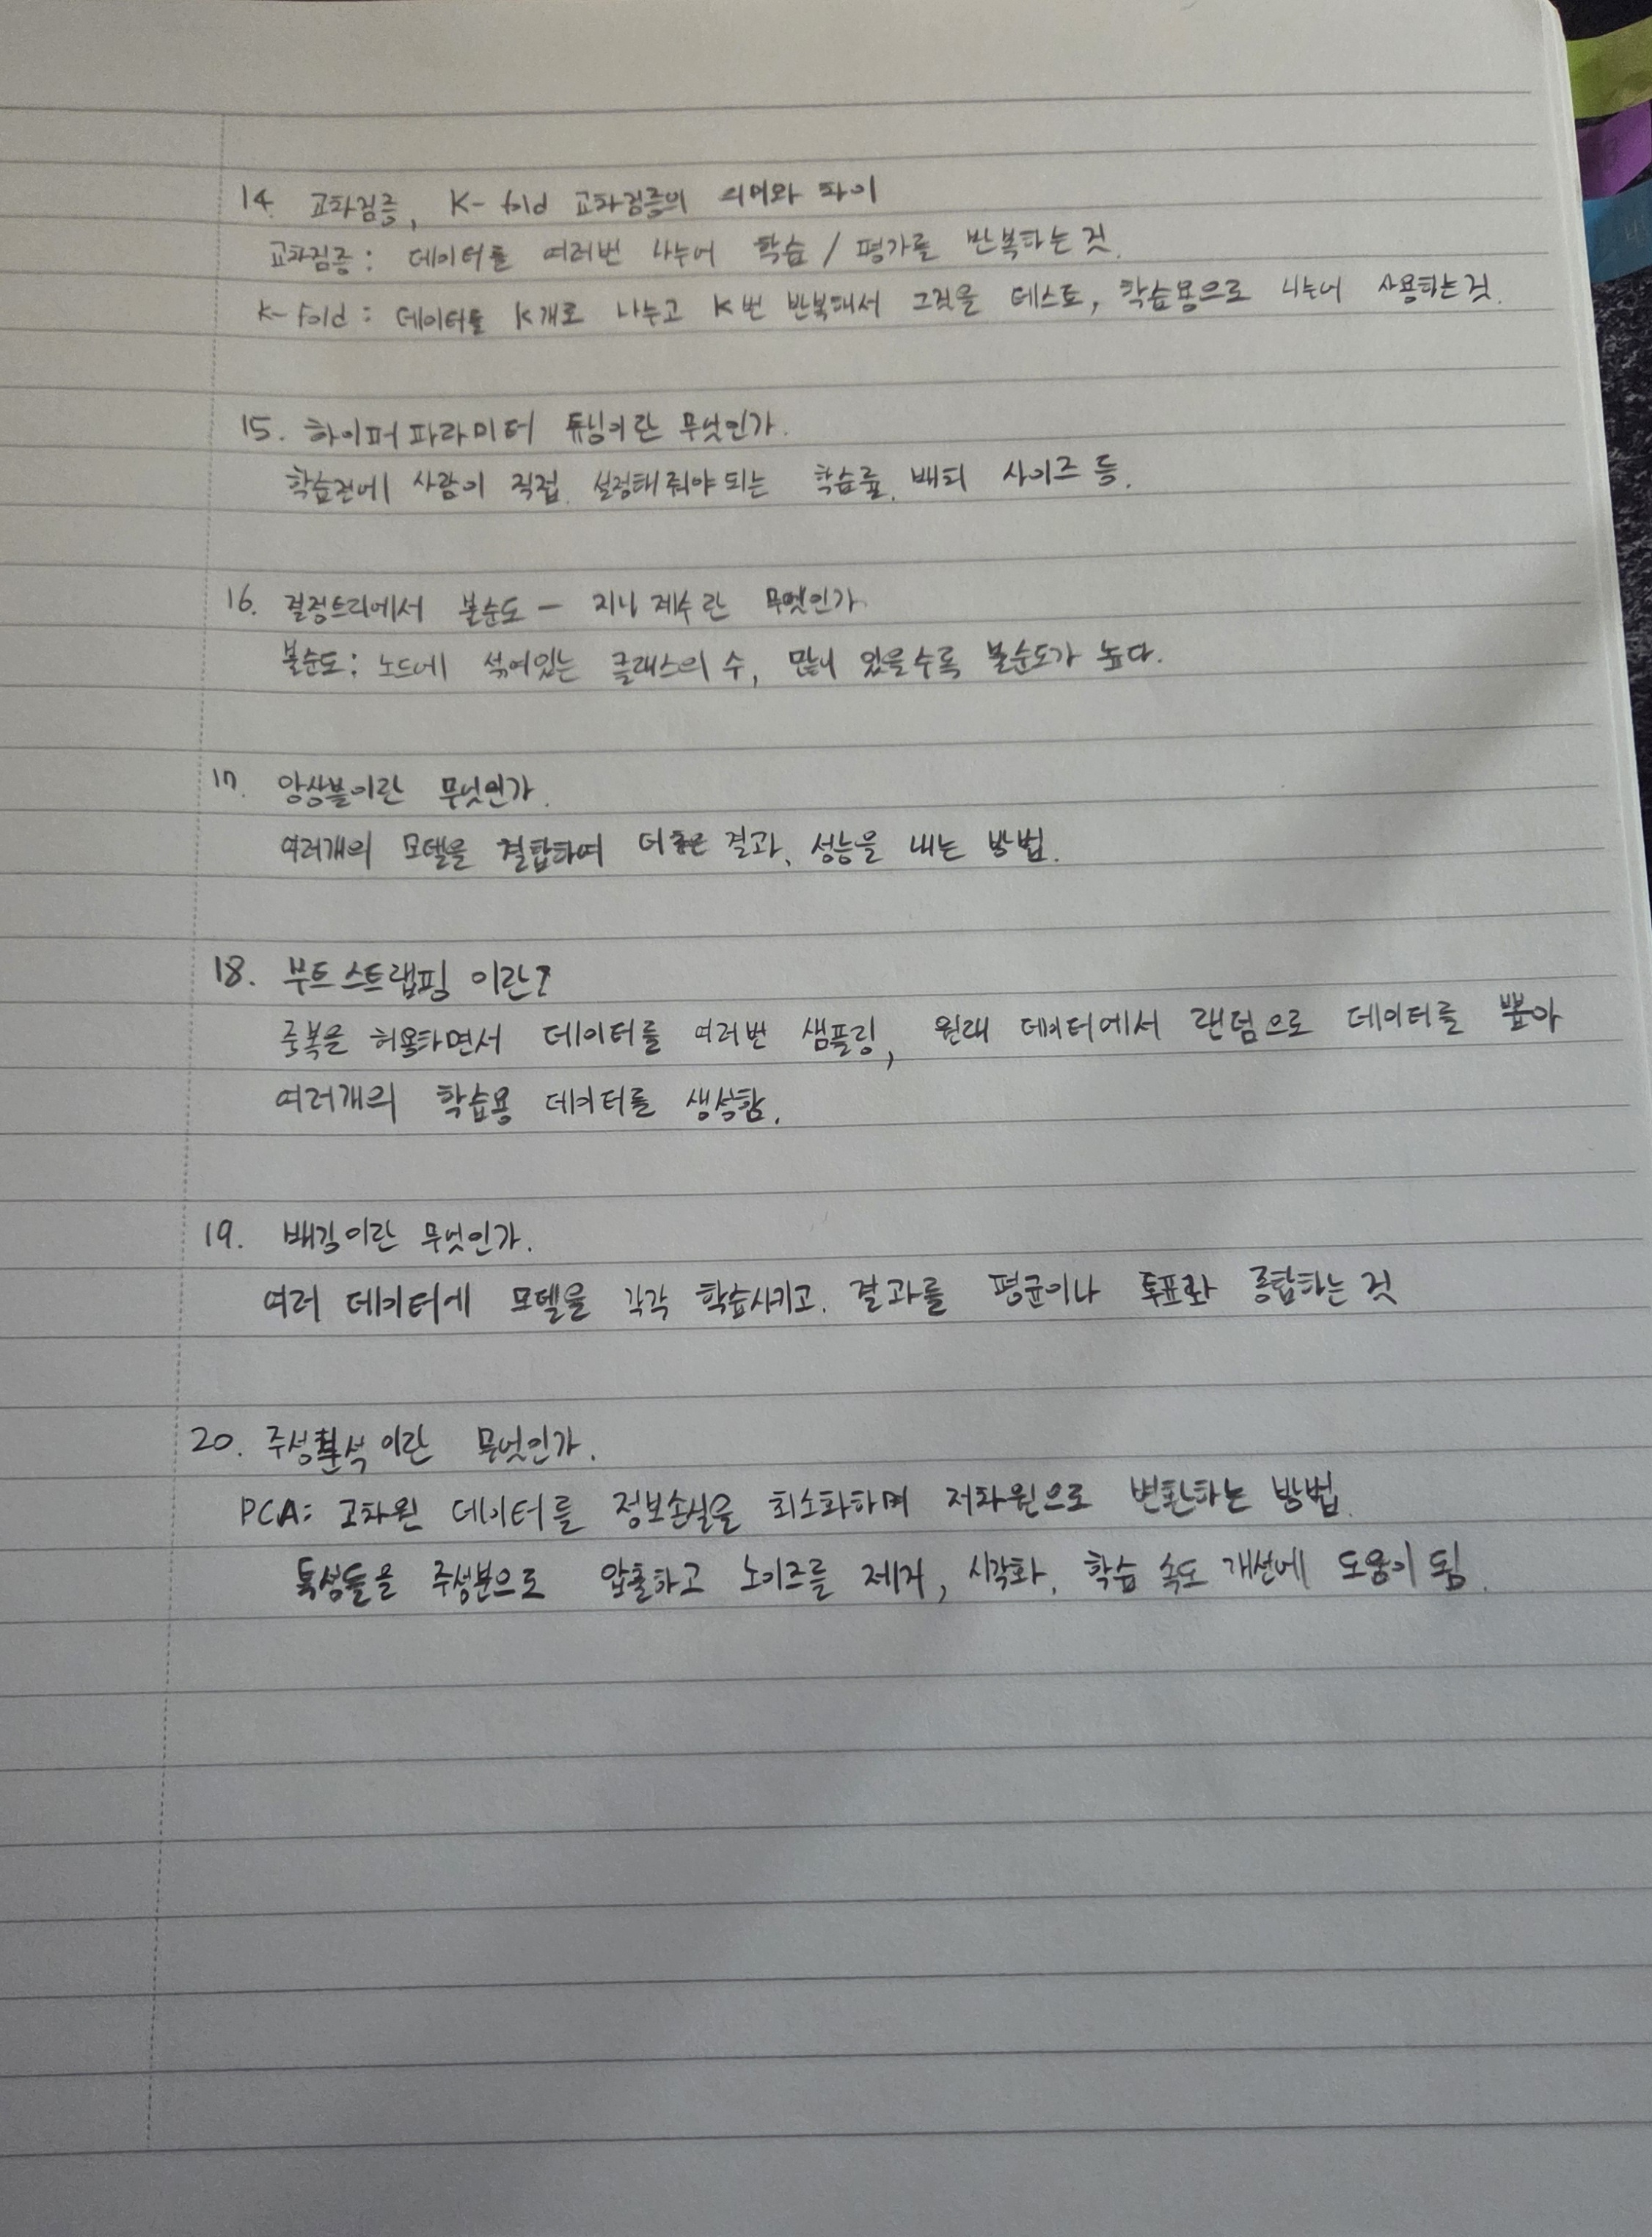 14. 교차검증, K-fold 교차검증의 의미와 차이
교차검증: 데이터를 여러번 나누어 학습 / 평가를 반복하는 것.
K-fold: 데이터를 K개로 나누고 K번 반복해서 그것을 테스트, 학습용으로 나누어 사용하는것.
15. 하이퍼파라미터 튜닝이란 무엇인가.
학습전에 사람이 직접 설정해줘야되는 학습률, 배치 사이즈 등.
16. 결정트리에서 불순도 - 지니 계수란 무엇인가
불순도: 노드에 섞여있는 클래스의 수, 많이 있을수록 불순도가 높다.
17. 앙상블이란 무엇인가.
여러개의 모델을 결합하여 더 좋은 결과, 성능을 내는 방법.
18. 부트스트랩핑 이란?
중복을 허용하면서 데이터를 여러번 샘플링, 원래 데이터에서 랜덤으로 데이터를 뽑아
여러개의 학습용 데이터를 생성함.
19. 배깅이란 무엇인가.
여러 데이터에 모델을 각각 학습시키고, 결과를 평균이나 투표로 종합하는 것
20. 주성분석이란 무엇인가.
PCA: 고차원 데이터를 정보손실을 최소화하며 저차원으로 변환하는 방법.
특성들을 주성분으로 압축하고 노이즈를 제거, 시각화, 학습 속도 개선에 도움이 됨.